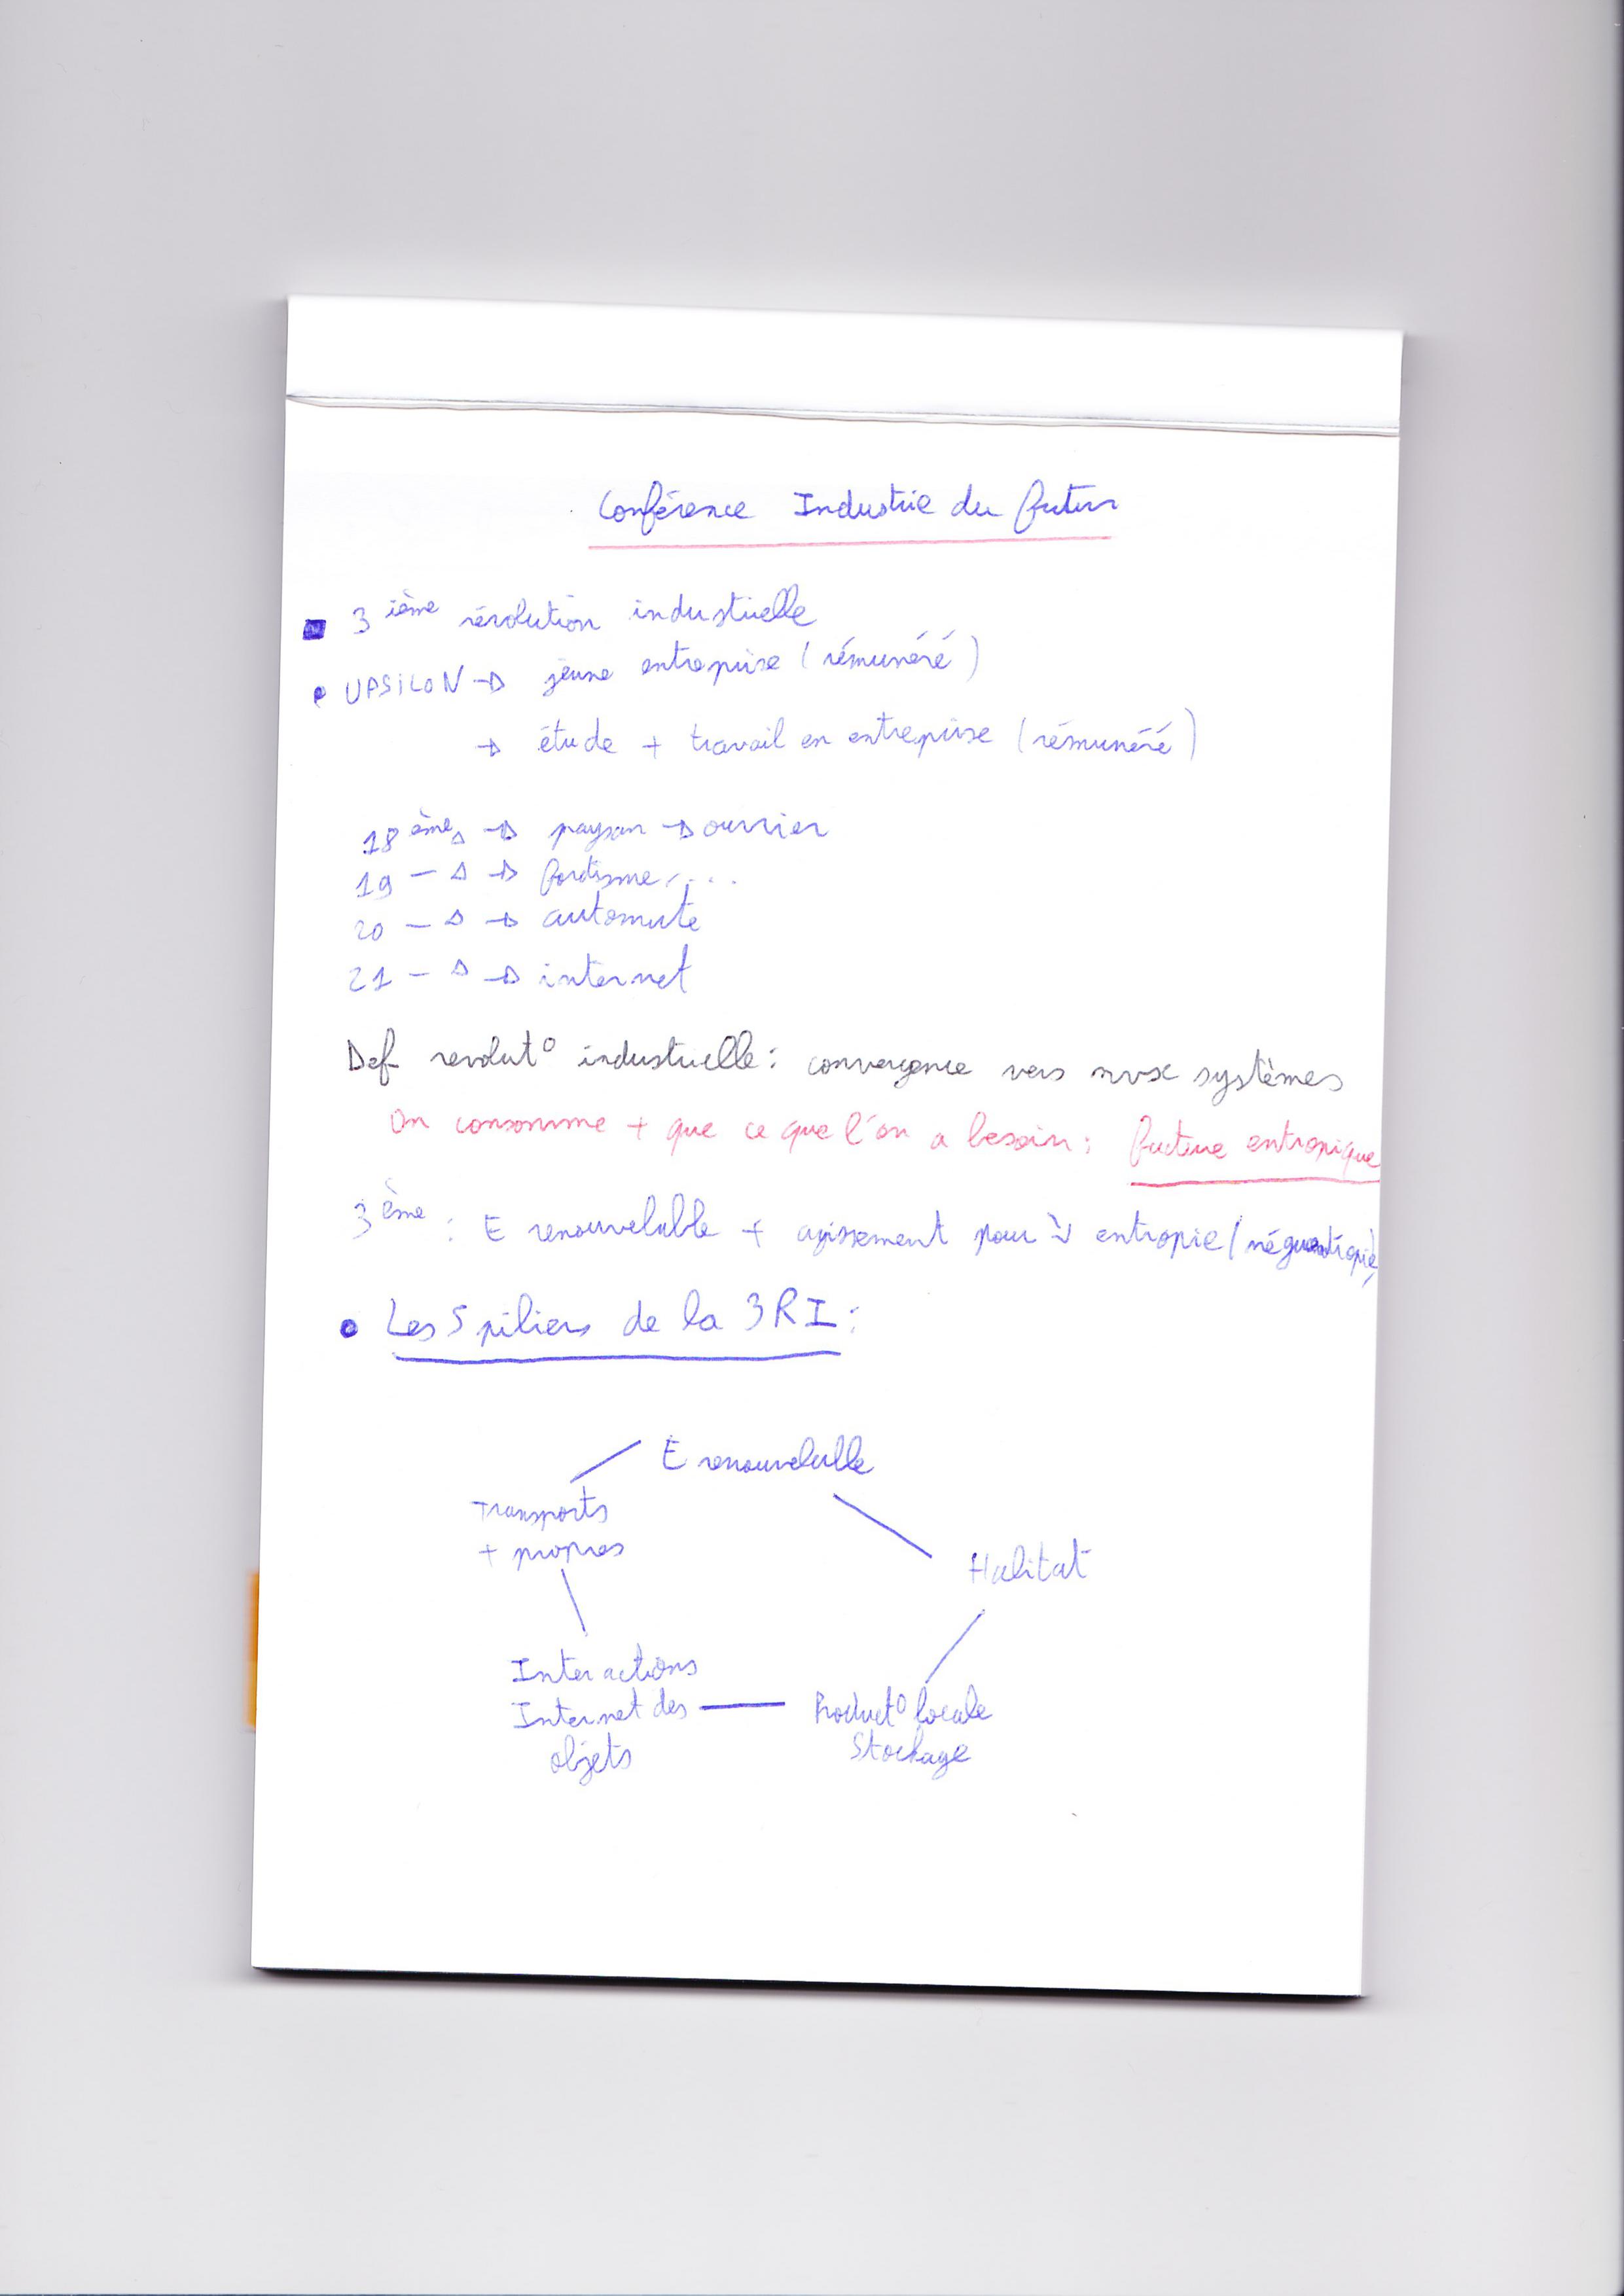 Conférence Industrie du futur
3 ième révolution industrielle
UPSILON → jeune entreprise (rémunéré)
→ étude + travail en entreprise (rémunéré)
18 ème s → paysan → ouvrier
19 — s → fordisme, ...
20 — s → automate
21 — s → internet
Def revolut° industrielle : convergence vers nvx systèmes
On consomme + que ce que l'on a besoin : facture entropique
3 ème : E renouvelable + agissement pour ↘ entropie (néguentropie)
Les 5 piliers de la 3RI :
E renouvelable
Transports
+ propres
Habitat
Interactions
Internet des
objets
Product° locale
Stockage